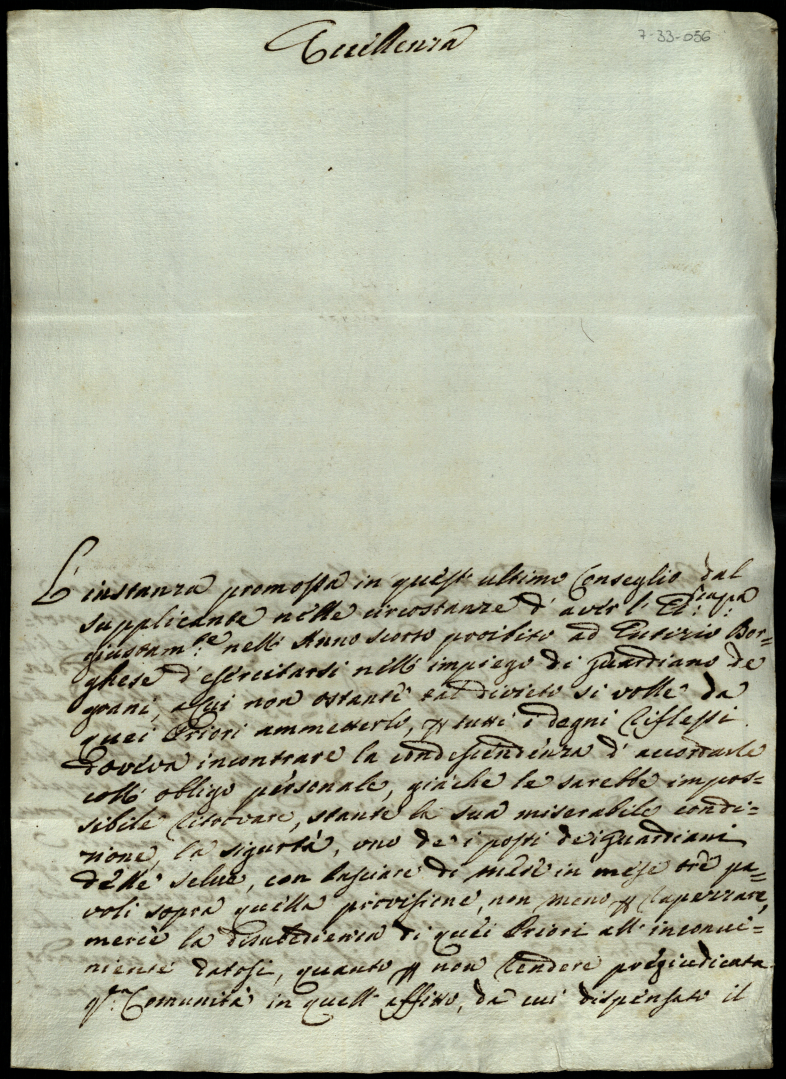 7-33-056
Eccellenza
L'instanza promossa in quest'ultimo Conseglio dal
supplicante nelle circostanze d'aver l'
giustam:te nell'Anno scorso proibito ad Eutizio Bor=
ghese d'esercitarsi nell'impiego di guardiano de
grani, a cui non ostante tal divieto si volle da
quei Priori ammetterlo, p tutti i degni riflessi
doveva incontrare la condescendenza d'accordarle
coll'obligo personale, giàche le sarebbe impos=
sibile ritrovare, stante la sua miserabile condi=
zione, la sigurtà, uno de i posti dei Guardiani
delle selve, con lasciare di mese in mese tre pa=
voli sopra quella provisione, non meno p rapezzare,
mercè la disubedienza di quei Priori all'inconve=
niente datosi, quanto p non rendere pregiudicata
q:ta Comunità in quell'affitto, da cui dispensato il